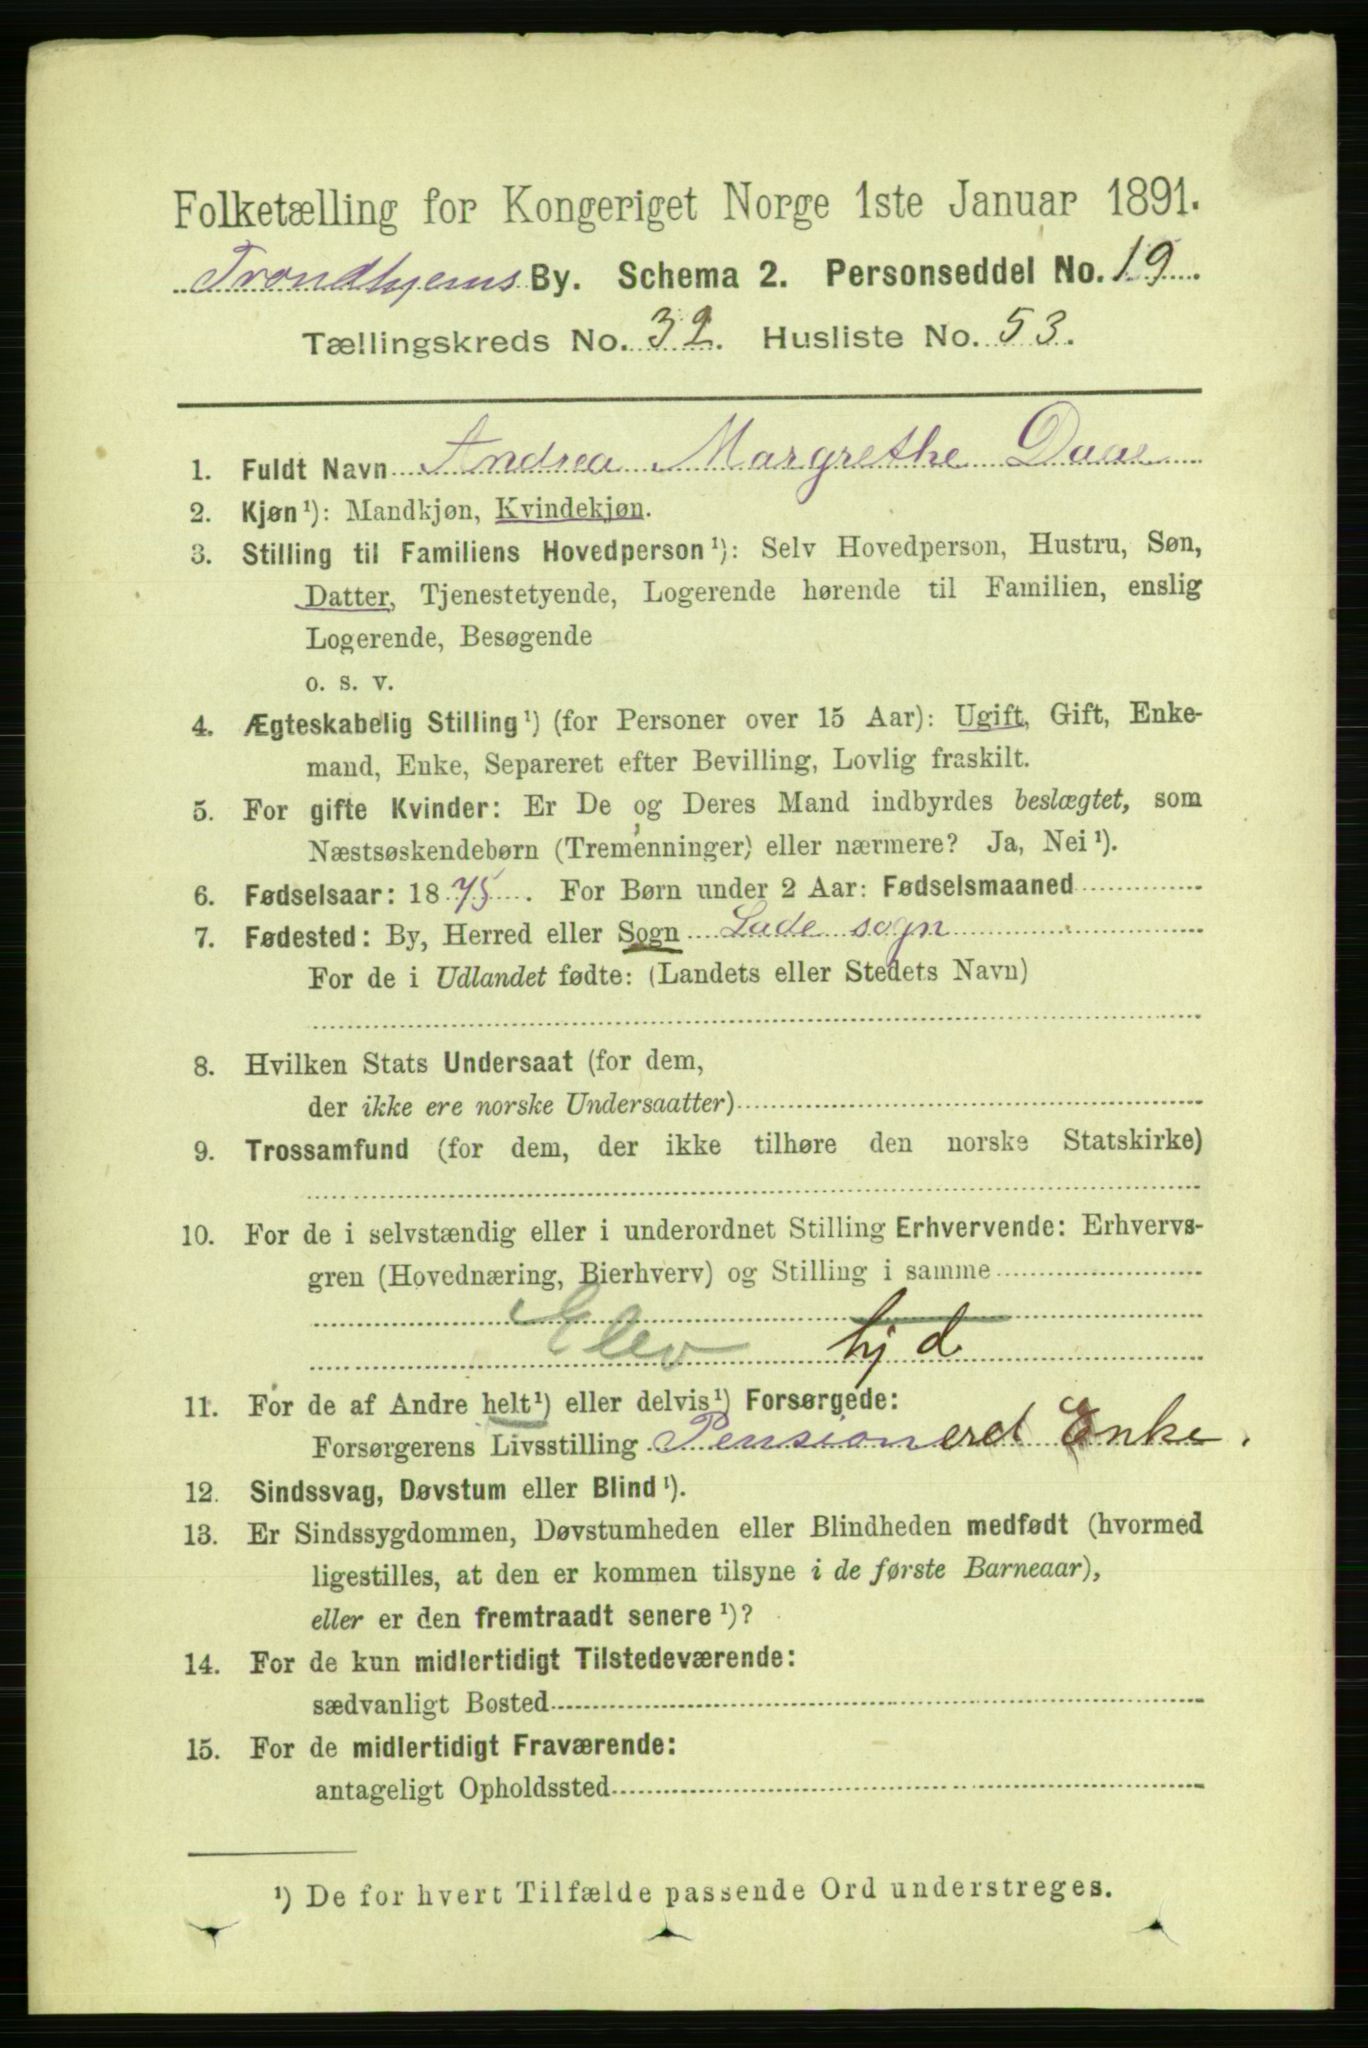 Folketælling for Kongeriget Norge 1ste Januar 1891.
Trondhjems By. Schema 2. Personseddel No. 19.
Tællingskreds No. 32. Husliste No. 53.
1. Fuldt Navn Andrea Margrethe Daae
2. Kjøn¹): Mandkjøn, Kvindekjøn.
3. Stilling til Familiens Hovedperson¹): Selv Hovedperson, Hustru, Søn,
Datter, Tjenestetyende, Logerende hørende til Familien, enslig
Logerende, Besøgende
o. s. v.
4. Ægteskabelig Stilling¹) (for Personer over 15 Aar): Ugift, Gift, Enke-
mand, Enke, Separeret efter Bevilling, Lovlig fraskilt.
5. For gifte Kvinder: Er De og Deres Mand indbyrdes beslægtet, som
Næstsøskendebørn (Tremenninger) eller nærmere? Ja, Nei¹).
6. Fødselsaar: 1875. For Børn under 2 Aar: Fødselsmaaned
7. Fødested: By, Herred eller Sogn Lade sogn
For de i Udlandet fødte: (Landets eller Stedets Navn)
8. Hvilken Stats Undersaat (for dem,
der ikke ere norske Undersaatter)
9. Trossamfund (for dem, der ikke tilhøre den norske Statskirke)
10. For de i selvstændig eller i underordnet Stilling Erhvervende: Erhvervs-
gren (Hovednæring, Bierhverv) og Stilling i samme
Elev hj d
11. For de af Andre helt¹) eller delvis¹) Forsørgede:
Forsørgerens Livsstilling Pensioneret Enke.
12. Sindssvag, Døvstum eller Blind¹).
13. Er Sindssygdommen, Døvstumheden eller Blindheden medfødt (hvormed
ligestilles, at den er kommen tilsyne i de første Barneaar),
eller er den fremtraadt senere¹)?
14. For de kun midlertidigt Tilstedeværende:
sædvanligt Bosted
15. For de midlertidigt Fraværende:
antageligt Opholdssted
¹) De for hvert Tilfælde passende Ord understreges.